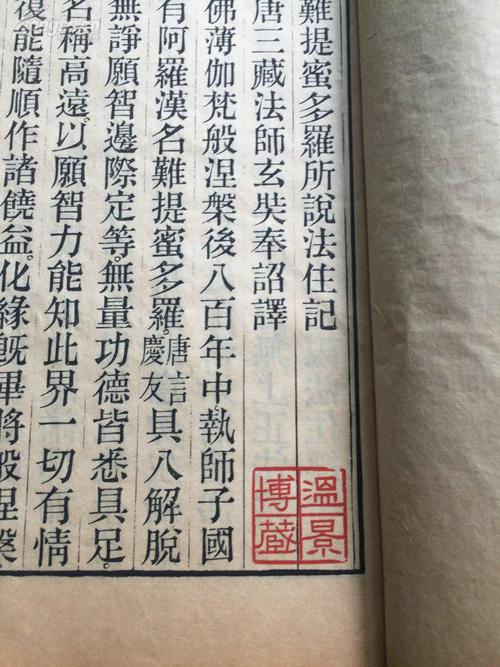 難提蜜多羅所說法住記
唐三藏法師玄奘奉詔譯
佛薄伽梵般涅槃後八百年中。執師子國
有阿羅漢名難提蜜多羅。唐言慶友具八解脫
無諍願智邊際定等。無量功德皆悉具足。
名稱高遠。以願智力能知此界一切有情
復能隨順作諸饒益。化緣既畢將般涅槃
溫景博藏